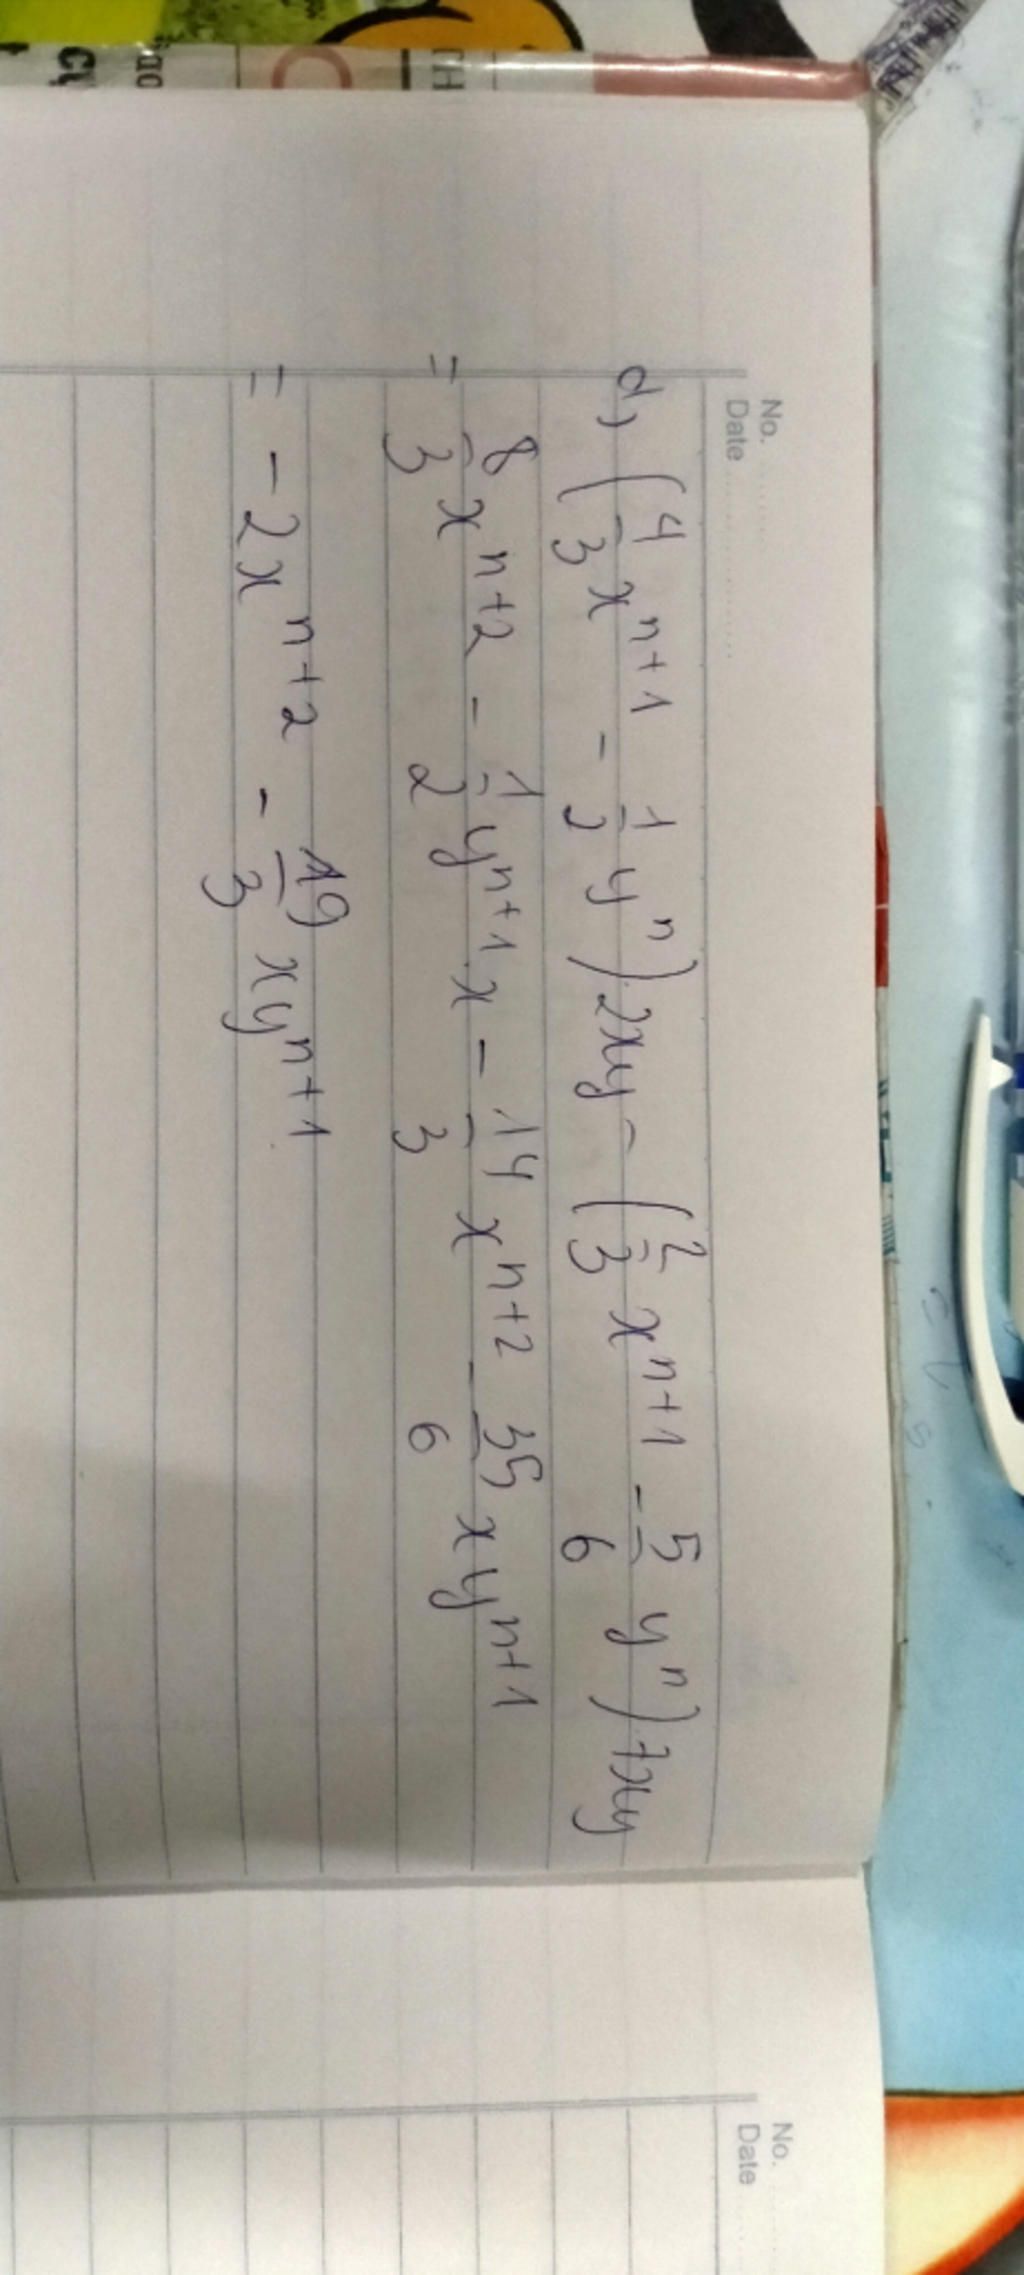 No.
Date
d, (4/3 x^{n+1} - 1/2 y^n) 2xy - (2/3 x^{n+1} - 5/6 y^n) 7xy
= 8/3 x^{n+2} - 1/2 y^{n+1}.x - 14/3 x^{n+2} - 35/6 xy^{n+1}
= -2x^{n+2} - 19/3 xy^{n+1}
No.
Date